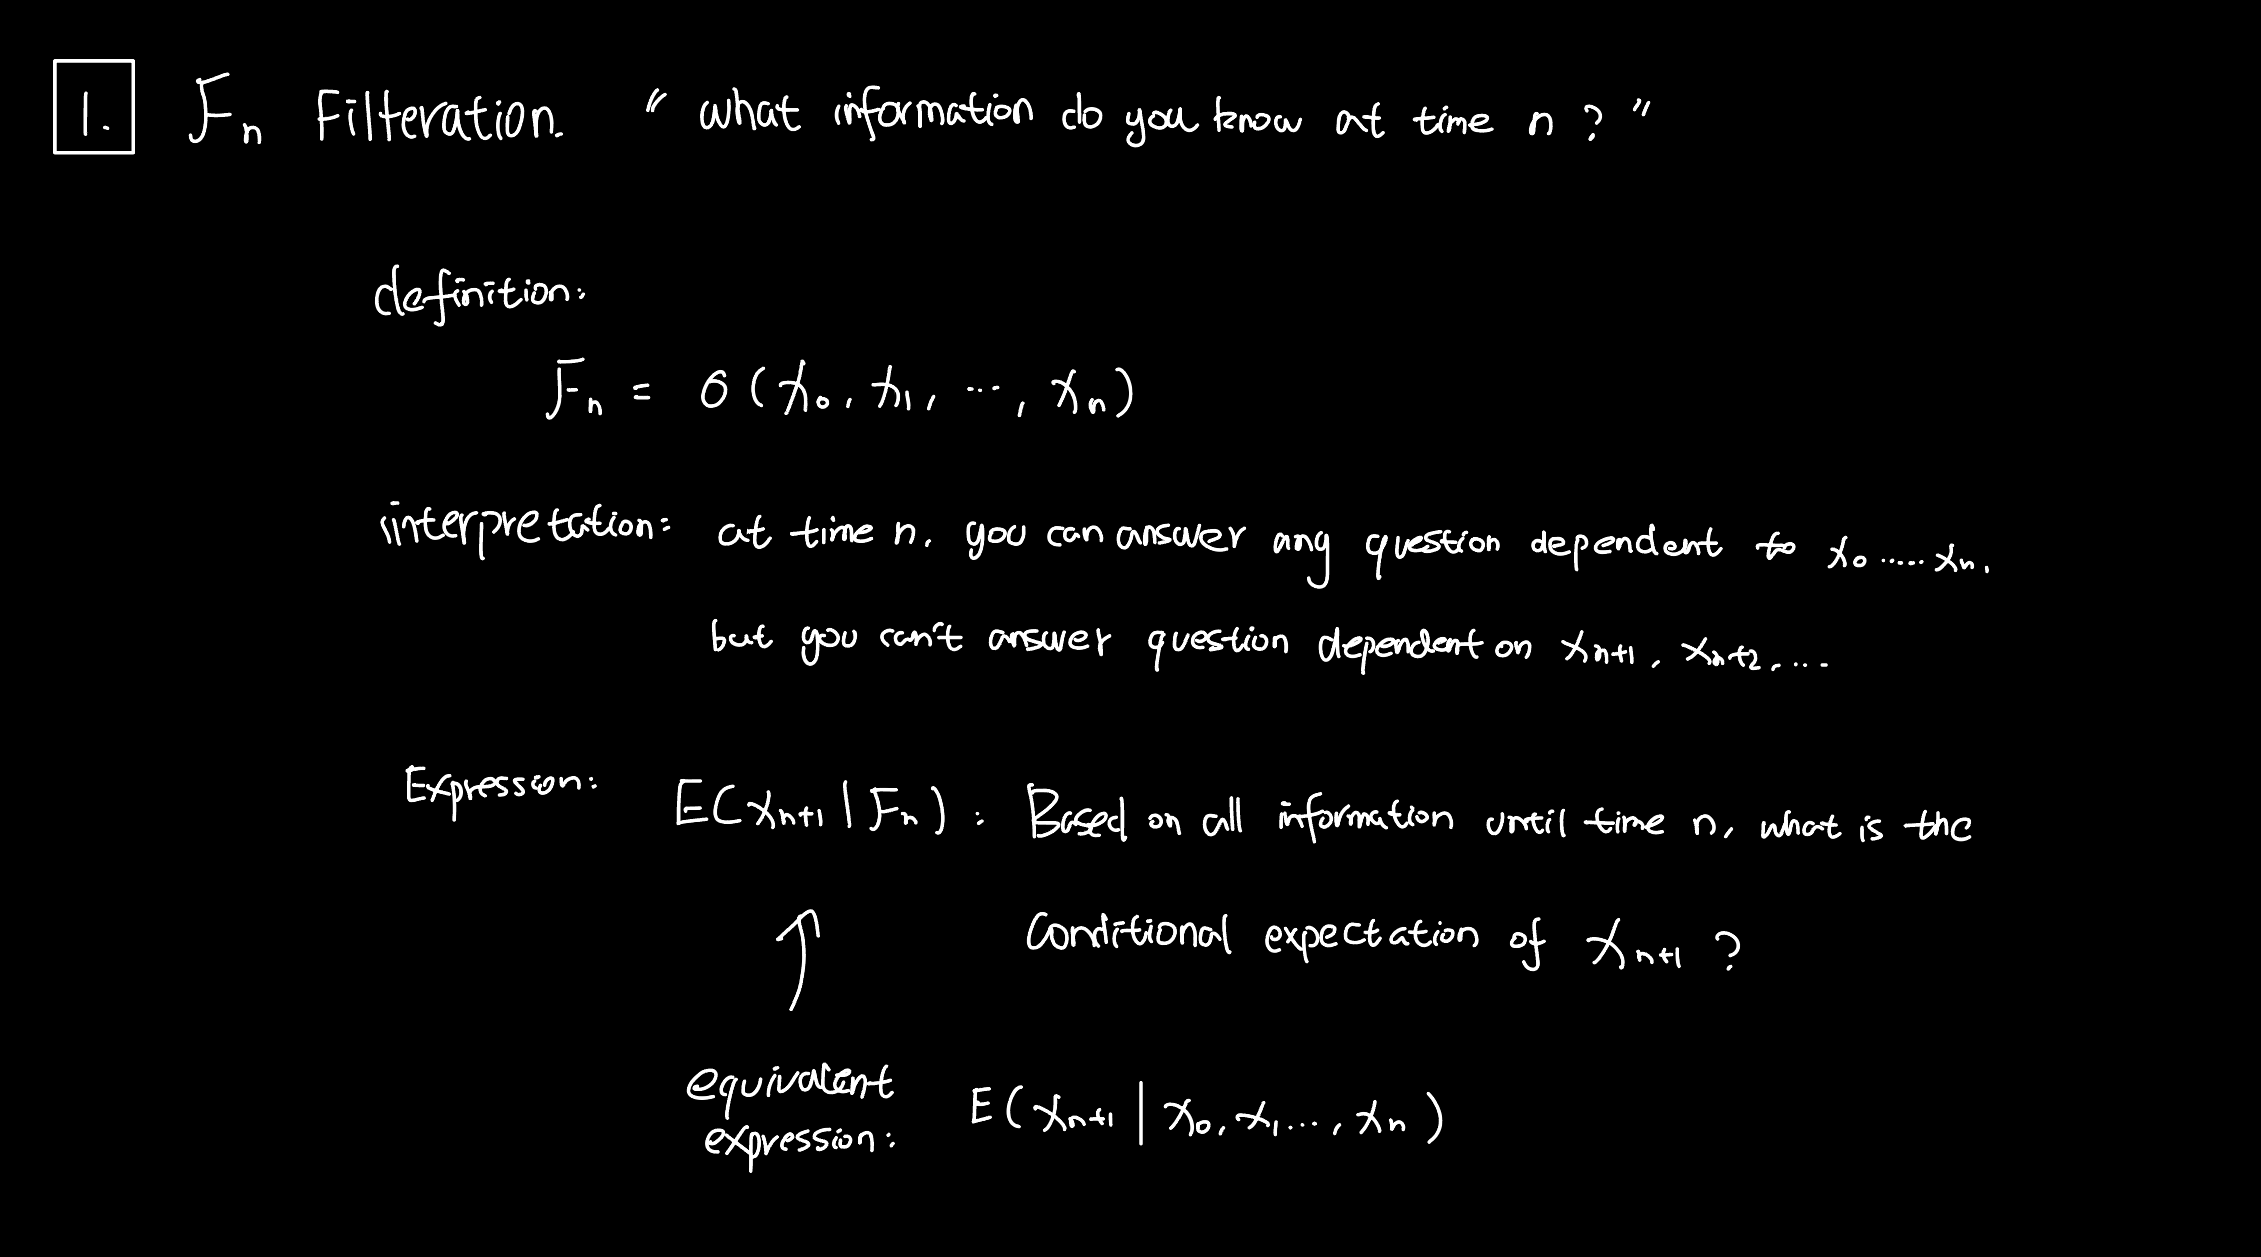 1. Fₙ Filteration. "what information do you know at time n ?"
definition:
Fₙ = σ (x₀, x₁, ..., xₙ)
interpretation: at time n, you can answer any question dependent to x₀ ..... xₙ,
but you can't answer question dependent on xₙ₊₁, xₙ₊₂, ...
Expression: E(xₙ₊₁ | Fₙ) : Based on all information until time n, what is the
Conditional expectation of xₙ₊₁ ?
equivalent
expression: E(xₙ₊₁ | x₀, x₁ ..., xₙ)